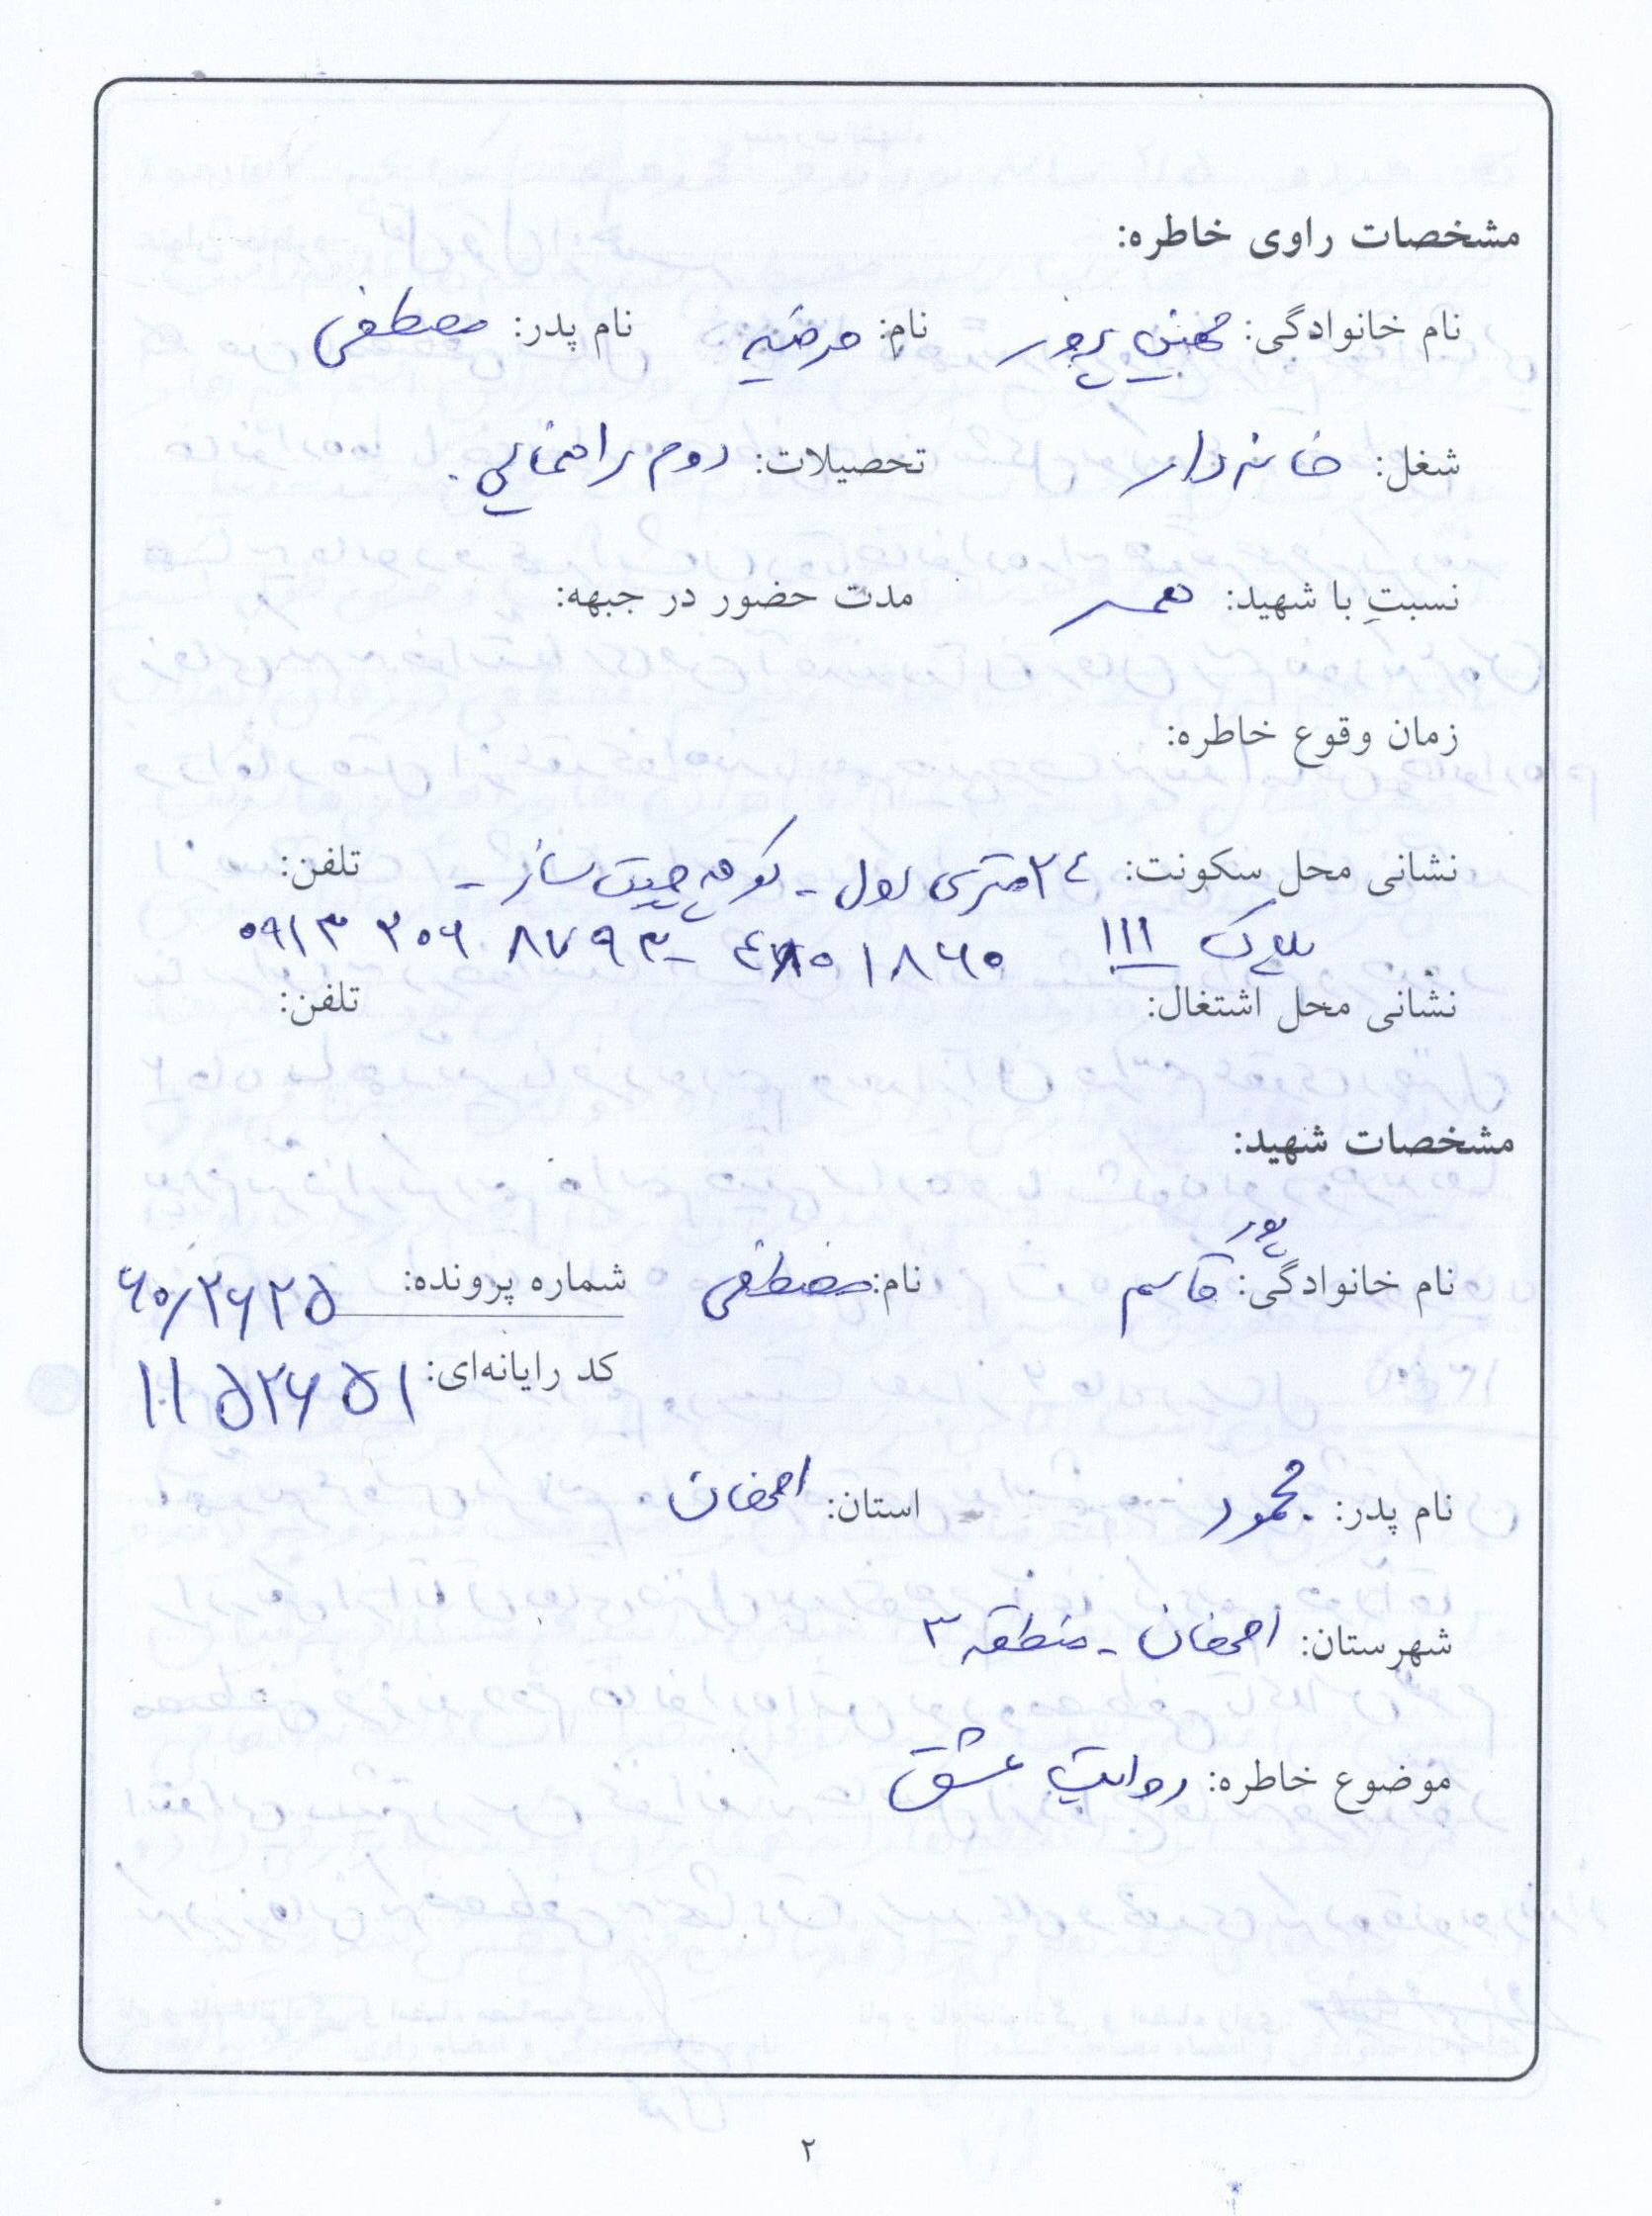 مشخصات راوی خاطره:
نام خانوادگی: مجنی پور نام: مرضیه نام پدر: مصطفی
شغل: خانه دار تحصیلات: دوم راهنمایی.
نسبتِ با شهید: همسر مدت حضور در جبهه:
زمان وقوع خاطره:
نشانی محل سکونت: ۲۴ متری اول - کوچه چیت ساز - تلفن:
پلاک ۱۱۱ ۰۹۱۳ ۳۰۶ ۸۷۹۳
نشانی محل اشتغال: تلفن:
مشخصات شهید:
نام خانوادگی: قاسم پور نام: مصطفی شماره پرونده: ۶۰/۲۶۲۵
کد رایانه‌ای: ۱۱۵۲۶۵۱
نام پدر: محمود استان: اصفهان
شهرستان: اصفهان - منطقه ۳
موضوع خاطره: روایت عشق
۲